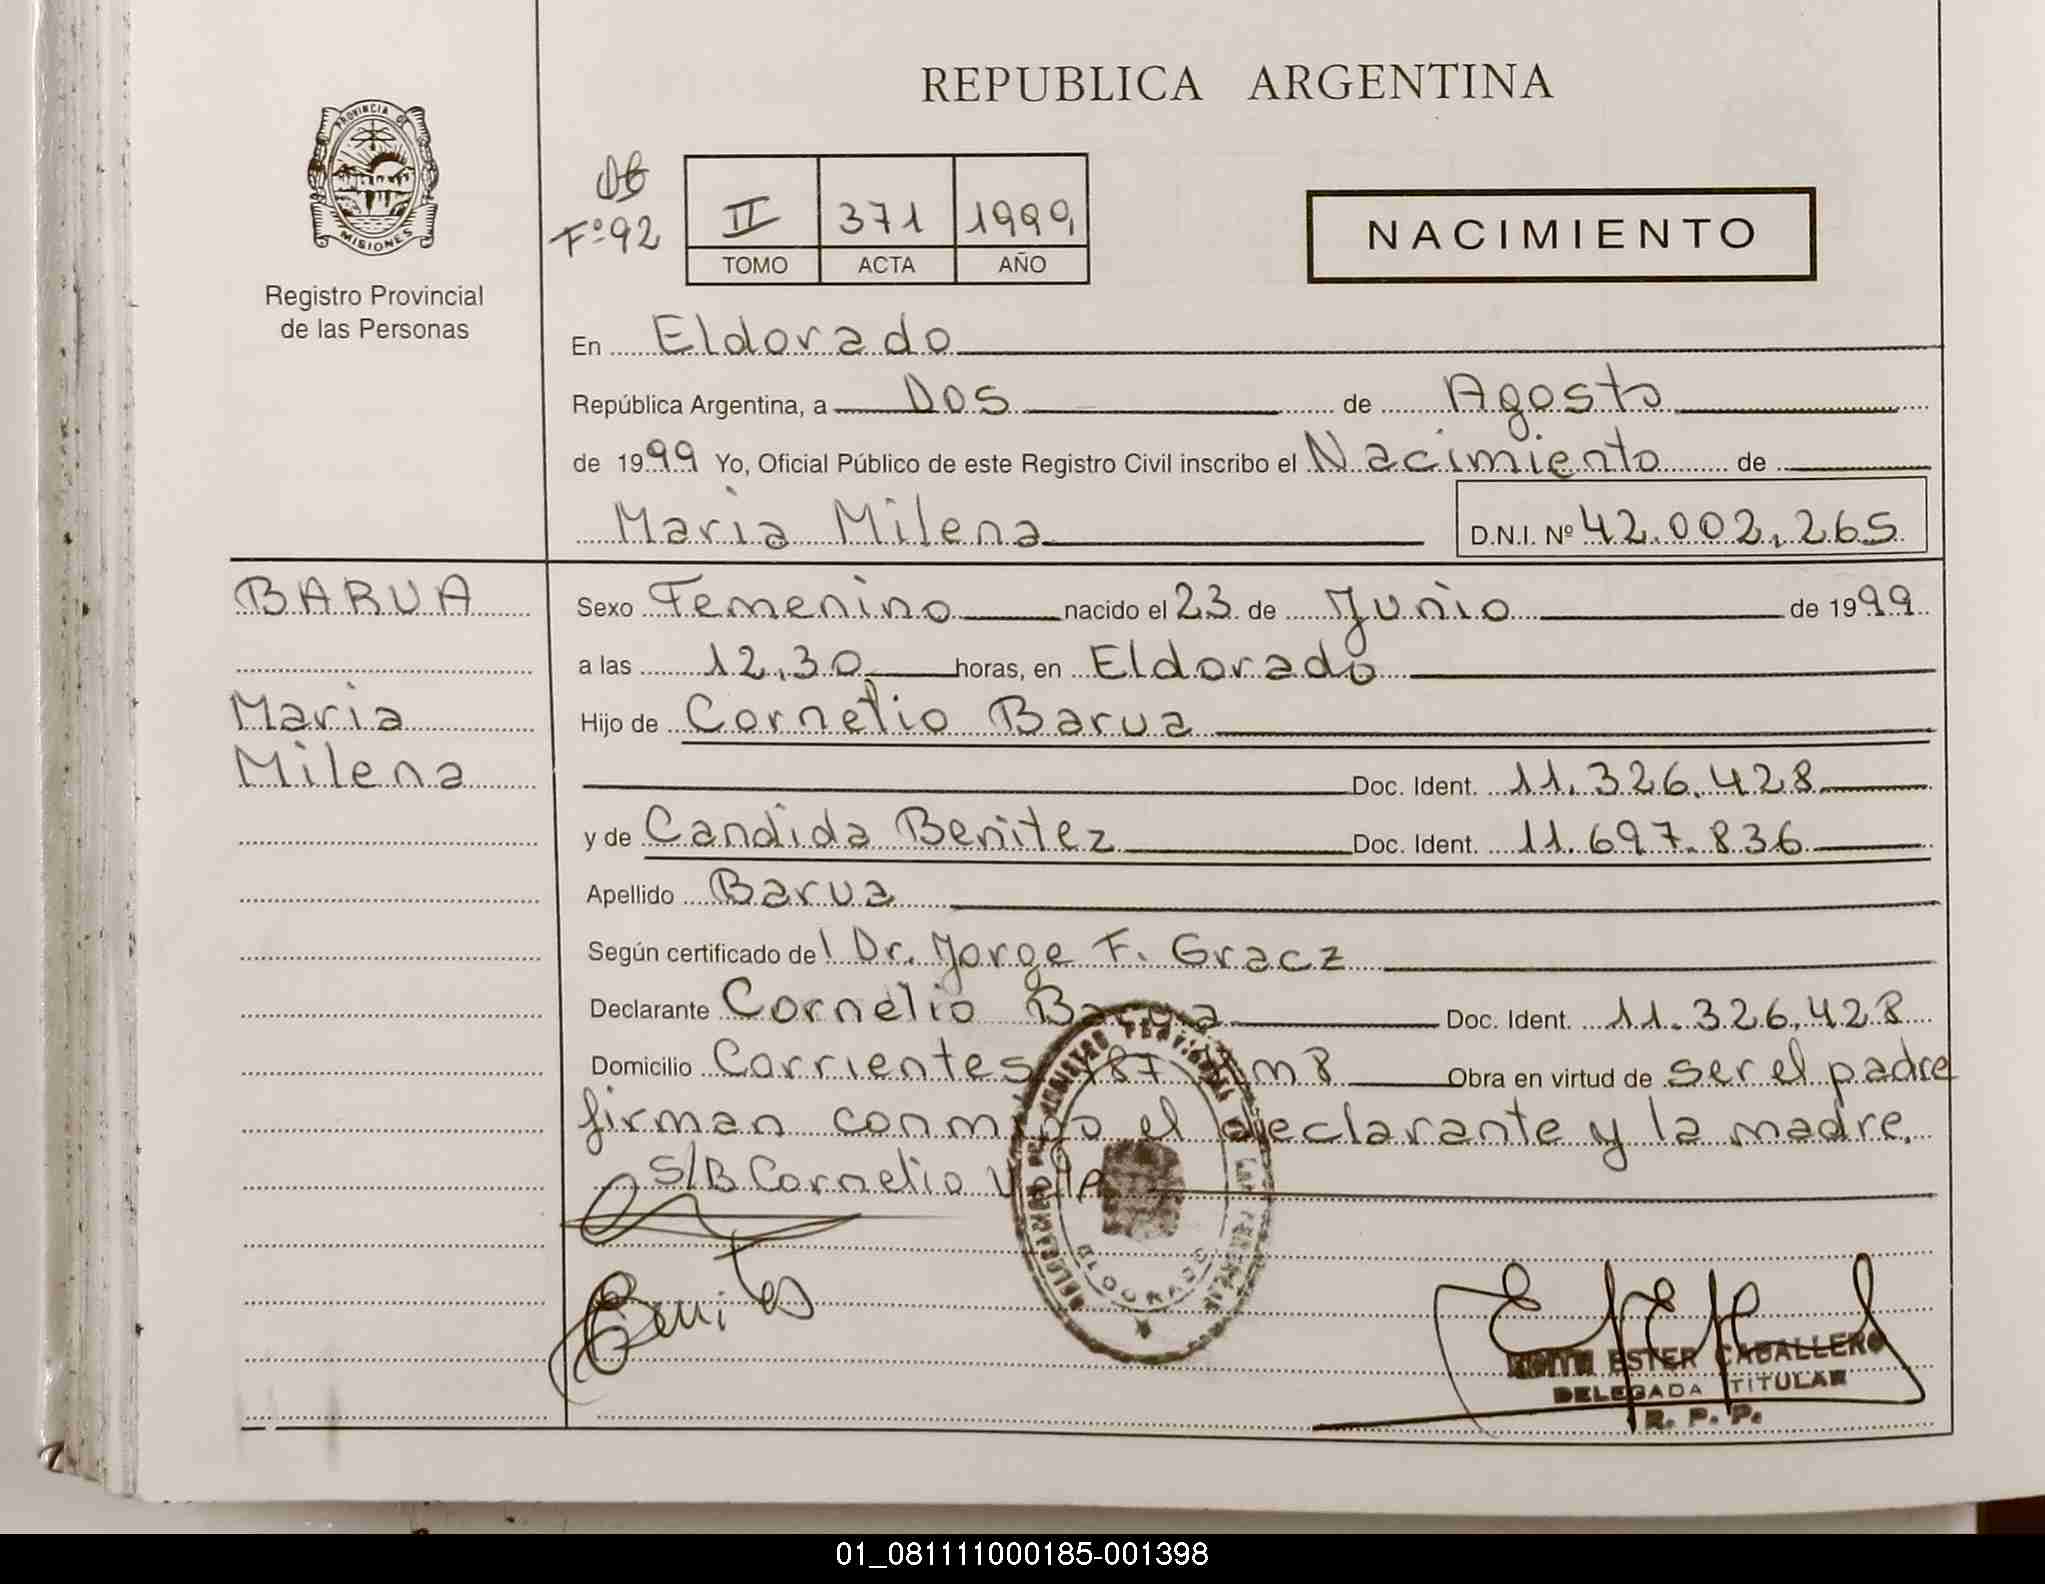 REPUBLICA ARGENTINA
PROVINCIA DE
MISIONES
Registro Provincial
de las Personas
Fº 92
II 371 1999
TOMO ACTA AÑO
NACIMIENTO
En Eldorado
República Argentina, a Dos de Agosto
de 1999 Yo, Oficial Público de este Registro Civil inscribo el Nacimiento de
Maria Milena D.N.I. Nº 42.002.265
BARUA
Maria
Milena
Sexo Femenino nacido el 23 de Junio de 1999
a las 12.30 horas, en Eldorado
Hijo de Cornelio Barua
Doc. Ident. 11.326.428
y de Candida Benitez Doc. Ident. 11.697.836
Apellido Barua
Según certificado del Dr. Jorge F. Gracz
Declarante Cornelio Barua Doc. Ident. 11.326.428
Domicilio Corrientes Km 8 Obra en virtud de ser el padre
firman conmigo el declarante y la madre.
S/B Cornelio Vale
Benites
ELDORADO
ESTER CABALLERO
DELEGADA TITULAR
R. P. P.
01_081111000185-001398